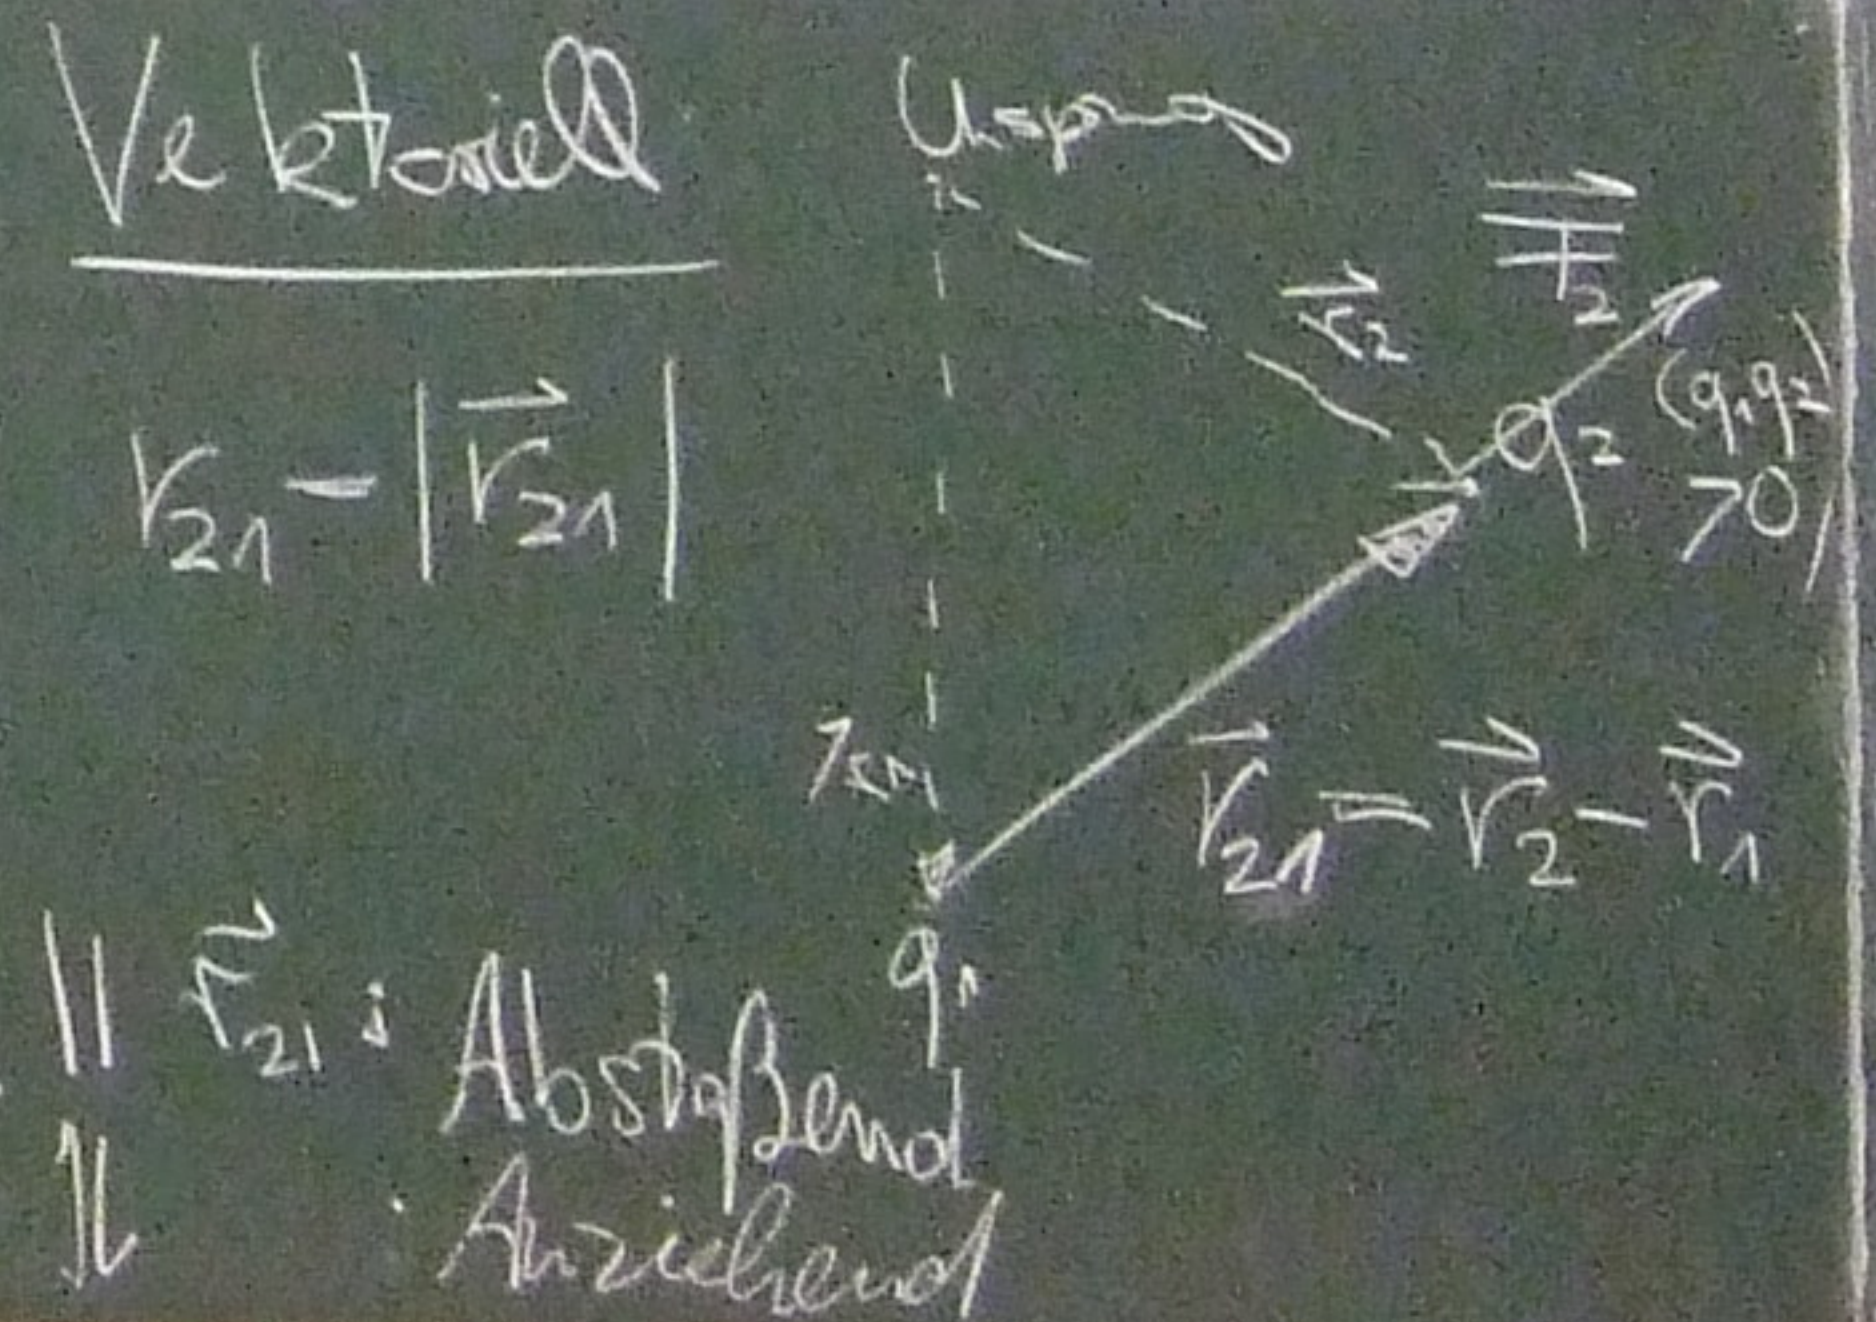 Vektoriell
Ursprung
r₂₁ = |r⃗₂₁|
r⃗₂
F⃗₂
q₂
(q₁q₂
>0)
r⃗₁
r⃗₂₁ = r⃗₂ - r⃗₁
q₁
|| r⃗₂₁: Abstoßend
⥮ : Anziehend